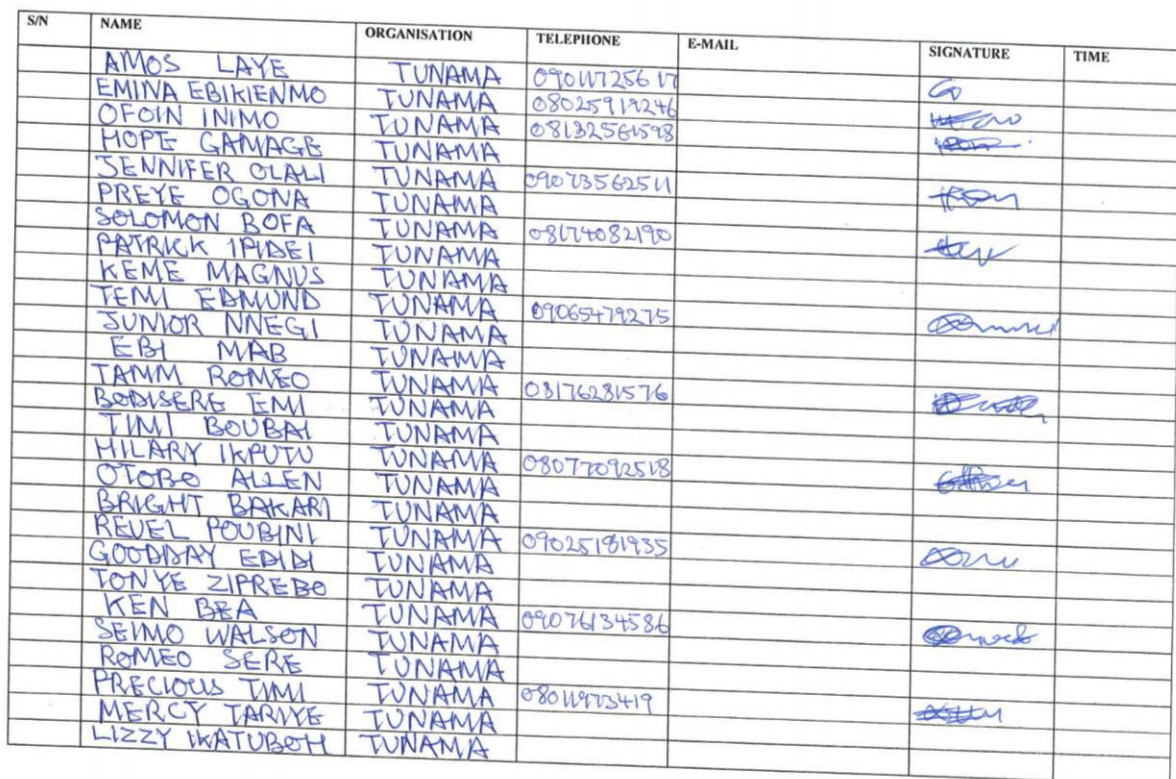 S/N NAME ORGANISATION TELEPHONE E-MAIL SIGNATURE TIME
AMOS LAYE TUNAMA
EMINA EBIKIENMO TUNAMA 08025919246
OFOIN INIMO TUNAMA 08132561598
HOPE GAMAGE TUNAMA
JENNIFER OLALI TUNAMA 09073562511
PREYE OGONA TUNAMA
SOLOMON BOFA TUNAMA 08174082190
PATRICK IPIDEI TUNAMA
KEME MAGNUS TUNAMA
TEMI EDMUND TUNAMA 09065479275
JUNIOR NNEGI TUNAMA
EBI MAB TUNAMA
TAMM ROMEO TUNAMA 08176281576
BODISERE EMI TUNAMA
TIMI BOUBAI TUNAMA
HILARY IKPUTU TUNAMA 08077092518
OTOBO ALLEN TUNAMA
BRIGHT BAKARI TUNAMA
REUEL POUBINI TUNAMA 09025181935
GOODDAY EDIDI TUNAMA
TONYE ZIPREBO TUNAMA
KEN BEA TUNAMA 09076134586
SEIMO WALSON TUNAMA
ROMEO SERE TUNAMA
PRECIOUS TIMI TUNAMA 08011973419
MERCY TARIYE TUNAMA
LIZZY IKATUBOH TUNAMA